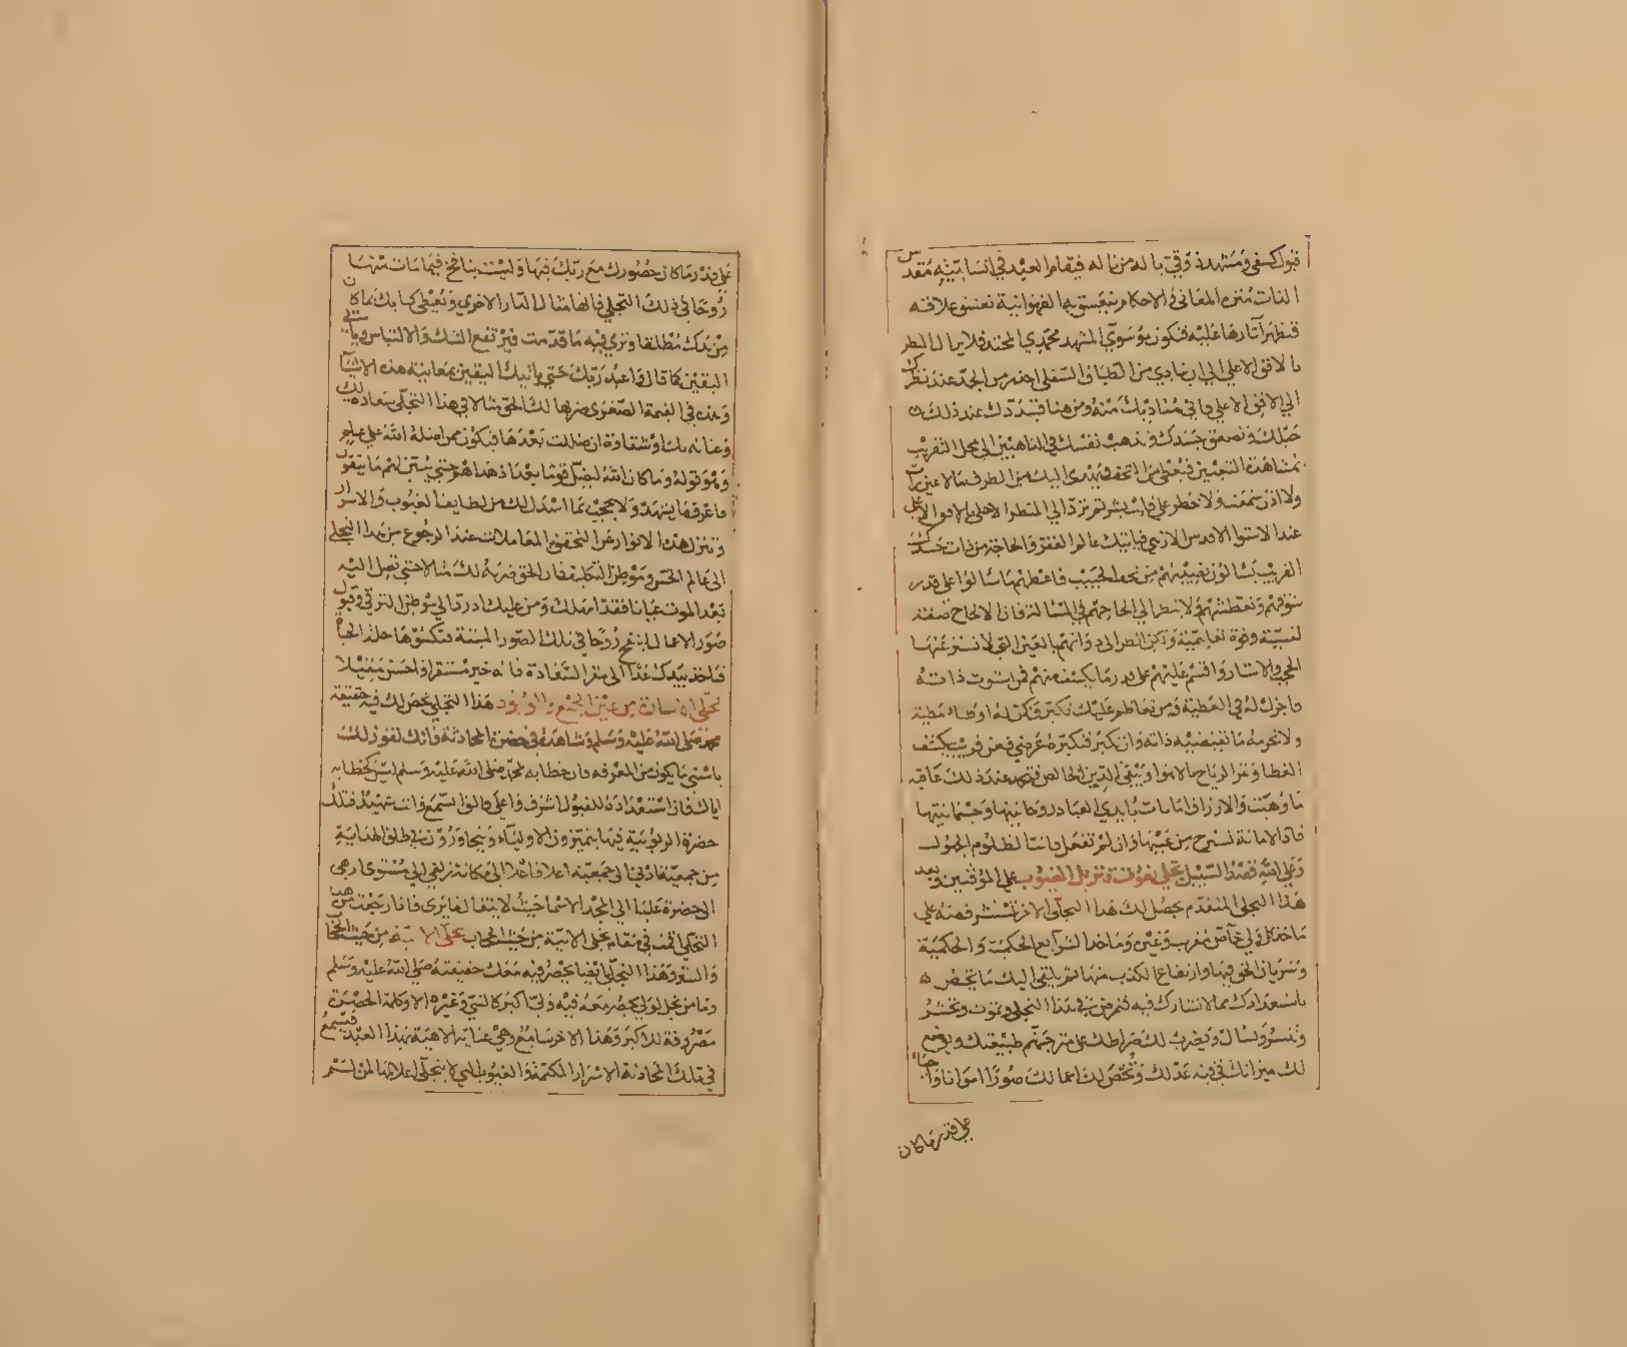 قبول كسفى ومشهد ذوقي باله من ناله فيقام العبد في انسانيته مقدس
الذات منزه المعانى والاحكام فتعشق به الفهوانية تعشق علاقه
فتظهر آثارها عليه فيكون موسوي المشهد محمدي المحتد فلا يزال النظر
بالافق الاعلي الي ان ينادي من الطباق السفلى احذر من الحد عند نظرك
الي الافق الاعلي فاني مناديك منه ومن هنا فيتدكدك عند ذلك
جبلك ويصعق جسدك وتذهب نفسك في الذاهبين الي محل التقريب
بمشاهدة التعيين فيعطى من التحف ويهدى اليك من الطرف ما لا عين رات
ولا اذن سمعت ولا خطر علي قلب بشر ثم ترد الي المنظر الاعلى بالافق الاعلي
عند الاستوا الاقدس الازهي فياتيك عالم الفقر والحاجة من ذات جسدك
الغريب يسالون نصيبهم من تحف الحبيب فاعطهم ما سالوا على قدر
شوقهم وتعطشهم ولا تنظر الي الحاحهم في المسالة فان الالحاح صفة
نفسية وقوة تعليمية ولكن انظر الى ذواتهم بالعين التي لا تستتر عنها
الحجب والاستار واقسم عليهم على قدر ما يكشف منهم فمن استوت ذاته
فاجزل له في العطية ومن تعاظم عليك تكبر فكن له اوطا مطية
ولا تحرمه ما تقتضيه ذاته وان تكبر فتكبره عرضي فعن قريب يكشف
الغطا وتمر الرياح بالاهوا ويبقى الدين الخالص فتحمد عند ذلك عاقبه
ما وهبت والارزاق امانات بايدي العباد روحانيها وجسمانيها
فاد الامانة تسترح من عبيها وان لم تفعل فانت الظلوم الجهول
وعلي الله قصد السبيل تجلي نعوت تنزل الغيوب علي الموقنين وبعد
هذا التجلى المتقدم يحصل لك هذا التجلى الاخر تستشرف منه علي
ماخذ كل ولي خاص مقرب وغيره وماخذ الشرايع الحكمية والحكمية
وسريان الحق فيها وارتفاع الكذب منها ثم يلقى اليك ما يخص
باستعدادك مما لا تشارك فيه ثم مرض في هذا التجلي وتموت وتحشر
وتنشر وتسال ويضرب لك صراطك على متن جهنم طبيعتك ويوضع
لك ميزانك في قبه عدلك وتحضر لك اعمالك صورا امواتا واحياء
على قدر ما كان
على قدر ما كان حضورك مع ربك فيها وليست بنافخ فيما مات منها
روحا في ذلك التجلي فانها مثال الدار الاخرى وتعطى كتابك بما كان
من يدك مطلقا وترى فيه ما قدمت فيرتفع الشك والالتباس وياتي
اليقين كما قال واعبد ربك حتى ياتيك اليقين بمعاينه هذه الاشيا
وهذه هي القيمة الصغرى ضربها لك الحق مثالا في هذا التجلي سعادة لك
وعناية بك او شقاوة ان ضللت بعدها فتكون ممن اضله الله على علم
وهو قوله وما كان الله ليضل قوما بعد اذ هداهم حتى يبين لهم ما يتقون
فاعرف ما يشهد ولا يحجبك بما اسدل لك من لطايف الغيوب والاسرار
وتنزل هذه الانوار عن التحقق بالمعاملات عند الرجوع من هذا التجلي
الى عالم الحس وموطن التكليف فان الحق ضربه لك مثالا حتى تصل اليه
بعد الموت عيانا فقد امهلك ومن عليك اذ ردك الي موطن الترقي وقبول
صور الاعمال لتنفخ روحا في تلك الصور الميتة فتكسوها حلة الحياة
فتاخذ بيدك غدا الى مقر السعادة فانه خير مستقرا واحسن مقيلا
تجلى الاشارة من عين الجمع والوجود هذا التجلي يحضر لك فيه حقيقة
محمد صلى الله عليه وسلم وتشاهده في حضرة المحادثة فانك تفوز لك
باسنى ما يكون من المعرفة فان خطابه لمحمد صلى الله عليه وسلم ليس كخطابه
اياك فان استعداده للقبول اشرف واعلى فالق السمع وانت شهيد فتلك
حضرة الربوبية فيها يتميزون الاولياء ويتجاوزون في طلق الهداية
من جمعية ادنى الى جمعية اعلا فاعلا الى مكانة زلفى الي مستوى ازهى
الى حضرة عليا الي المجد الاسما حيث لا ينقال فان رجعت من هذا
التجلي اقمت في مقام تجلى الانية من حيث الحجاب تجلى الانية من حيث الحجاب
والستر وهذا التجلي ايضا يحضر فيه معك حقيقة صلى الله عليه وسلم
وما من تجل لولي يحضر معه فيه ولي اكبر كالنبي وغيره الا وكلمة الحضرة
مصروفة للاكبر وهذا الاخر سامع وهي عناية الاهية بهذا العبد فتسمع
في تلك المحادثة الاسرار المكتمة والغيوب التي لا تتجلى اعلامها لمن لم